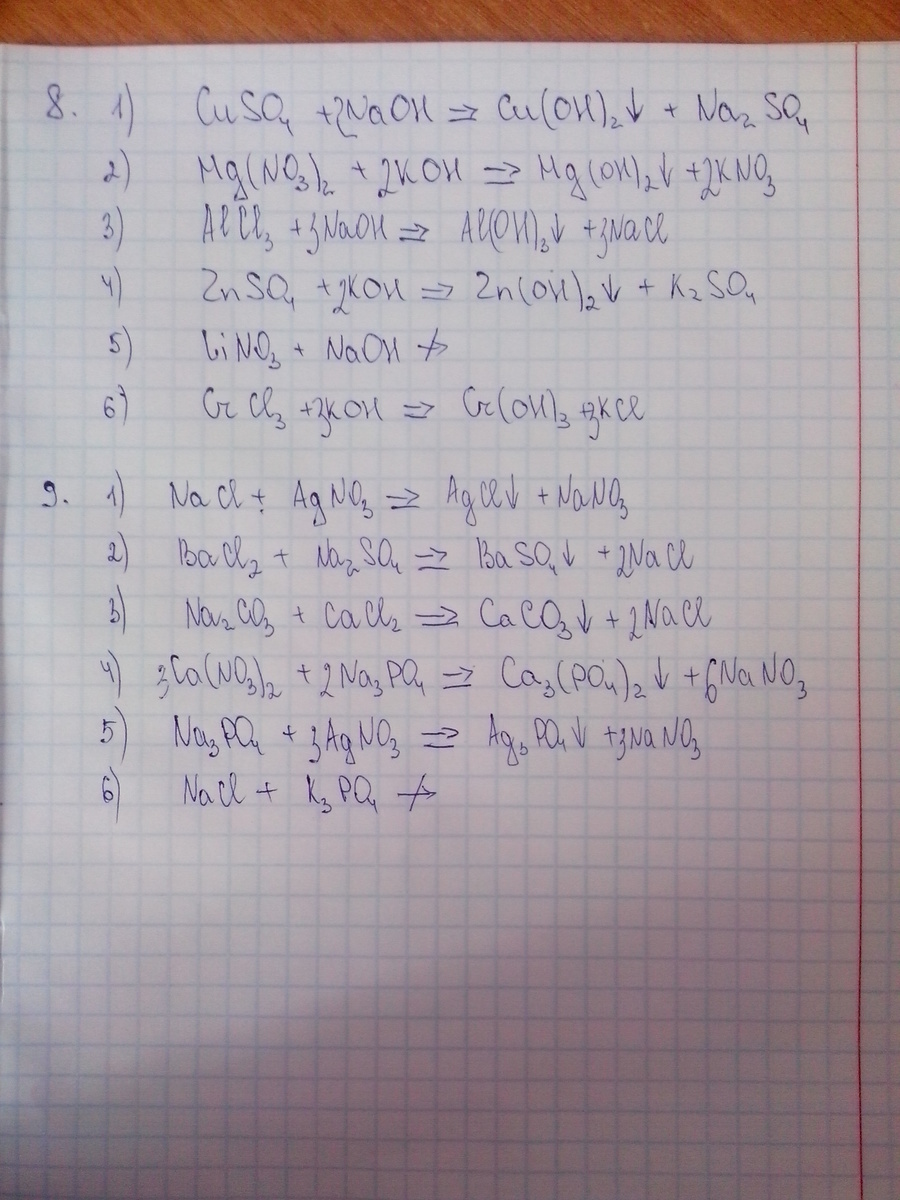 8. 1) CuSO₄ + 2NaOH ⇒ Cu(OH)₂↓ + Na₂SO₄
2) Mg(NO₃)₂ + 2KOH ⇒ Mg(OH)₂↓ + 2KNO₃
3) AlCl₃ + 3NaOH ⇒ Al(OH)₃↓ + 3NaCl
4) ZnSO₄ + 2KOH ⇒ Zn(OH)₂↓ + K₂SO₄
5) LiNO₃ + NaOH ↛
6) CrCl₃ + 3KOH ⇒ Cr(OH)₃ + 3KCl
9. 1) NaCl + AgNO₃ ⇒ AgCl↓ + NaNO₃
2) BaCl₂ + Na₂SO₄ ⇒ BaSO₄↓ + 2NaCl
3) Na₂CO₃ + CaCl₂ ⇒ CaCO₃↓ + 2NaCl
4) 3Ca(NO₃)₂ + 2Na₃PO₄ ⇒ Ca₃(PO₄)₂↓ + 6NaNO₃
5) Na₃PO₄ + 3AgNO₃ ⇒ Ag₃PO₄↓ + 3NaNO₃
6) NaCl + K₃PO₄ ↛